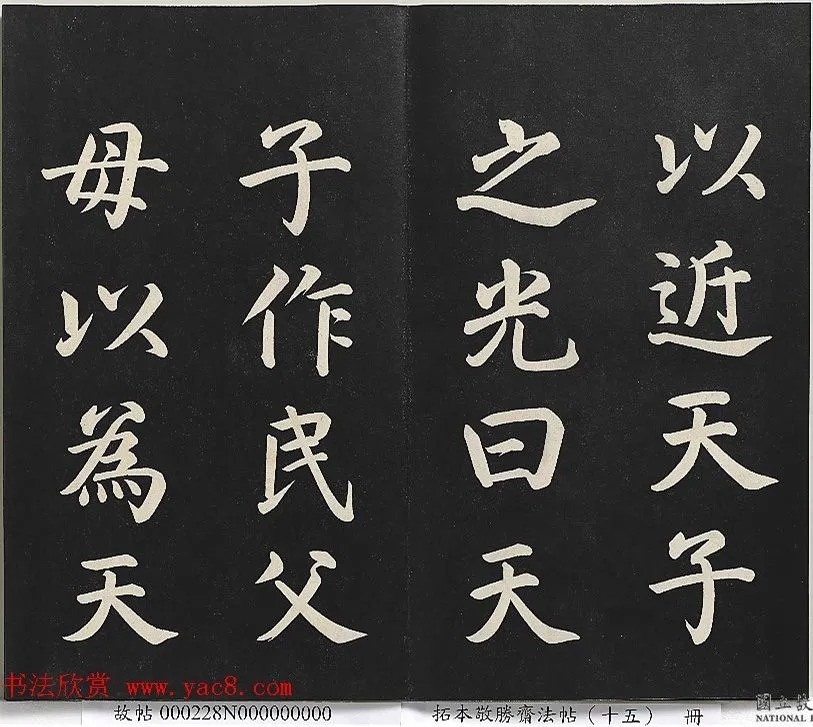 以近天子
之光曰天
子作民父
母以為天
书法欣赏 www.yac8.com
故帖 000228N000000000
拓本敬勝齋法帖（十五） 冊
國立故
NATIONAL